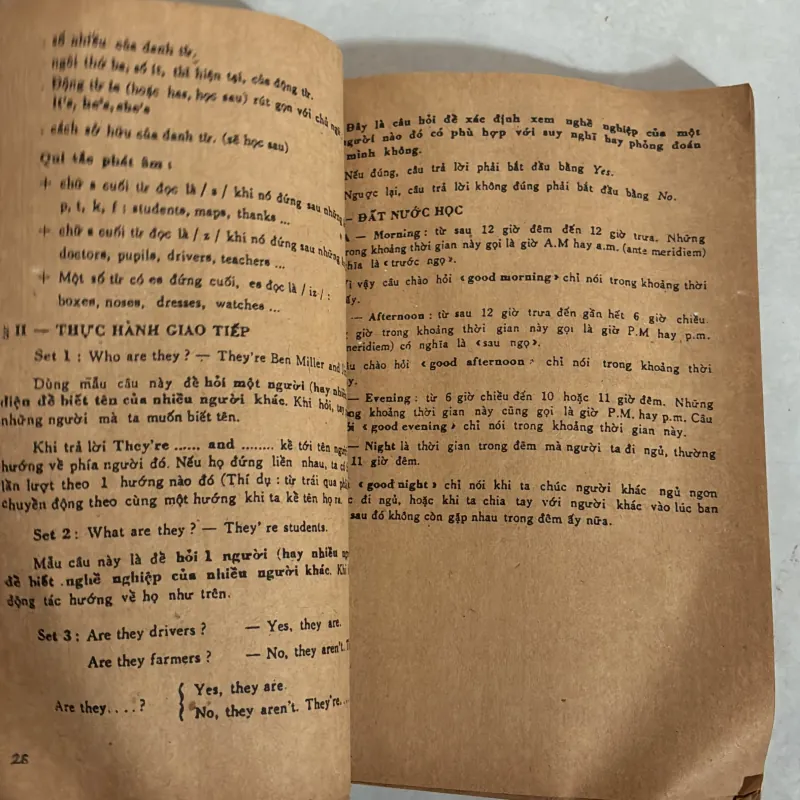 số nhiều của danh từ.
ngôi thứ ba, số ít, thì hiện tại, của động từ.
Động từ is (hoặc has, học sau) rút gọn với chủ ngữ
It's, he's, she's
cách sở hữu của danh từ. (sẽ học sau)
Qui tắc phát âm :
+ chữ s cuối từ đọc là / s / khi nó đứng sau những
p, t, k, f : students, maps, thanks ...
+ chữ s cuối từ đọc là / z / khi nó đứng sau những
doctors, pupils, drivers, teachers ...
+ Một số từ có es đứng cuối, es đọc là / iz / :
boxes, noses, dresses, watches ...
§ II — THỰC HÀNH GIAO TIẾP
Set 1 : Who are they ? — They're Ben Miller and
Dùng mẫu câu này để hỏi một người (hay nhiều
diện để biết tên của nhiều người khác. Khi hỏi, tay
những người mà ta muốn biết tên.
Khi trả lời They're ...... and ........ kề tới tên người
hướng về phía người đó. Nếu họ đứng liền nhau, ta
lần lượt theo 1 hướng nào đó (Thí dụ : từ trái qua
chuyền động theo cùng một hướng khi ta kề tên họ ra.
Set 2 : What are they ? — They' re students.
Mẫu câu này là để hỏi 1 người (hay nhiều
để biết nghề nghiệp của nhiều người khác. Khi
động tác hướng về họ như trên.
Set 3 : Are they drivers ? — Yes, they are.
Are they farmers ? — No, they aren't.
Are they. . . . ? { Yes, they are.
No, they aren't. They're...
28
Đây là câu hỏi để xác định xem nghề nghiệp của một
người nào đó có phù hợp với suy nghĩ hay phỏng đoán
mình không.
Nếu đúng, câu trả lời phải bắt đầu bằng Yes.
Ngược lại, câu trả lời không đúng phải bắt đầu bằng No.
— ĐẤT NƯỚC HỌC
— Morning : từ sau 12 giờ đêm đến 12 giờ trưa. Những
trong khoảng thời gian này gọi là giờ A.M hay a.m. (ante meridiem)
nghĩa là «trước ngọ».
Vì vậy câu chào hỏi «good morning» chỉ nói trong khoảng thời
— Afternoon : từ sau 12 giờ trưa đến gần hết 6 giờ chiều.
giờ trong khoảng thời gian này gọi là giờ P.M hay p.m.
meridiem) có nghĩa là «sau ngọ».
chào hỏi «good afternoon» chỉ nói trong khoảng thời
— Evening : từ 6 giờ chiều đến 10 hoặc 11 giờ đêm. Những
khoảng thời gian này cũng gọi là giờ P.M. hay p.m. Câu
«good evening» chỉ nói trong khoảng thời gian này.
— Night là thời gian trong đêm mà người ta đi ngủ, thường
11 giờ đêm.
«good night» chỉ nói khi ta chúc người khác ngủ ngon
đi ngủ, hoặc khi ta chia tay với người khác vào lúc ban
sau đó không còn gặp nhau trong đêm ấy nữa.